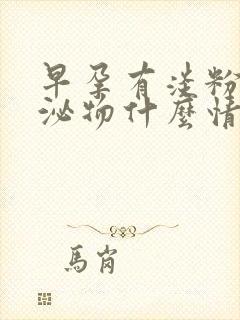 早孕有淡粉
泌物什麼情
馬肖